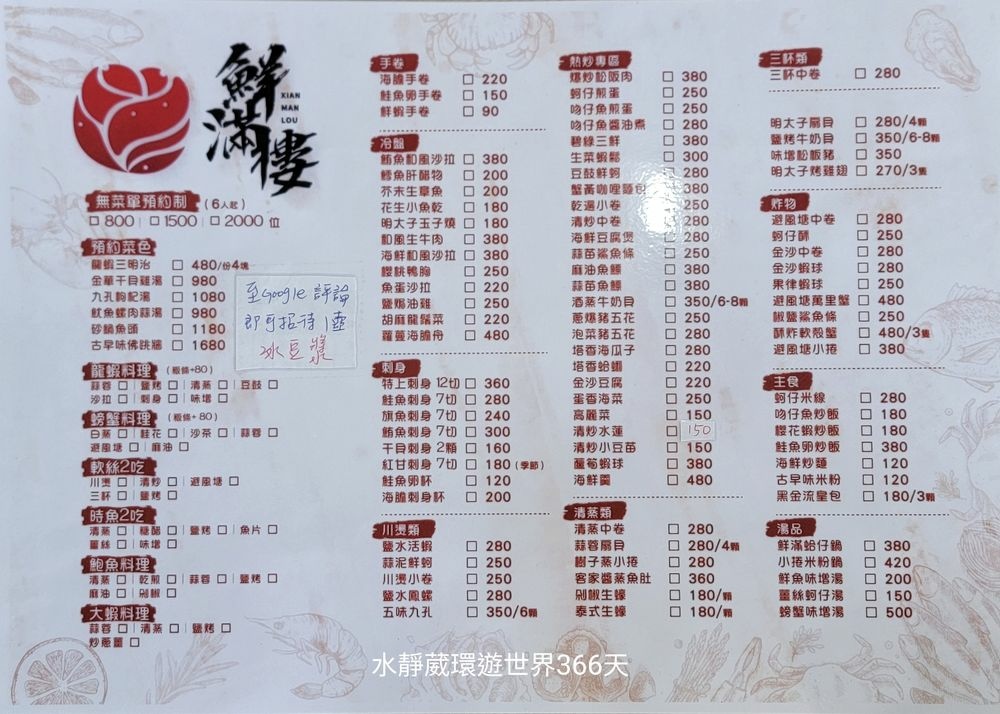 鮮滿樓
XIAN
MAN
LOU
無菜單預約制 (6人起)
□ 800 | □ 1500 | □ 2000 位
預約菜色
龍蝦三明治 □ 480/份4塊
金華干貝雞湯 □ 980
九孔枸杞湯 □ 1080
魷魚螺肉蒜湯 □ 980
砂鍋魚頭 □ 1180
古早味佛跳牆 □ 1680
至Google 評論
即可招待1壺
冰豆漿
龍蝦料理 (粄條+80)
蒜蓉 □ | 鹽烤 □ | 清蒸 □ | 豆鼓 □
沙拉 □ | 刺身 □ | 味增 □
螃蟹料理 (粄條+80)
白蒸 □ | 桂花 □ | 沙茶 □ | 蒜蓉 □
避風塘 □ | 麻油 □
軟絲2吃
川燙 □ | 清炒 □ | 避風塘 □
三杯 □ | 鹽烤 □
時魚2吃
清蒸 □ | 糖醋 □ | 鹽烤 □ | 魚片 □
薑絲 □ | 味增 □
鮑魚料理
清蒸 □ | 乾煎 □ | 蒜蓉 □ | 鹽烤 □
麻油 □ | 剁椒 □
大蝦料理
蒜蓉 □ | 清蒸 □ | 鹽烤 □
炒蔥薑 □
手卷
海膽手卷 □ 220
鮭魚卵手卷 □ 150
鮮蝦手卷 □ 90
冷盤
鮪魚和風沙拉 □ 380
鱈魚肝醋物 □ 200
芥末生章魚 □ 200
花生小魚乾 □ 180
明太子玉子燒 □ 180
和風生牛肉 □ 380
海鮮和風沙拉 □ 380
櫻桃鴨胸 □ 250
魚蛋沙拉 □ 220
鹽焗油雞 □ 250
胡麻龍鬚菜 □ 220
蘿蔓海膽舟 □ 480
刺身
特上刺身 12切 □ 360
鮭魚刺身 7切 □ 280
旗魚刺身 7切 □ 240
鮪魚刺身 7切 □ 300
干貝刺身 2顆 □ 160
紅甘刺身 7切 □ 180 (季節)
鮭魚卵杯 □ 120
海膽刺身杯 □ 200
川燙類
鹽水活蝦 □ 280
蒜泥鮮蚵 □ 250
川燙小卷 □ 250
鹽水鳳螺 □ 280
五味九孔 □ 350/6顆
熱炒專區
爆炒松阪肉 □ 380
蚵仔煎蛋 □ 250
吻仔魚煎蛋 □ 250
吻仔魚醬油煮 □ 280
碧綠三鮮 □ 380
生菜蝦鬆 □ 300
豆鼓鮮蚵 □ 280
蟹黃咖哩麵包 □ 380
乾逼小卷 □ 250
清炒中卷 □ 280
海鮮豆腐煲 □ 280
蒜苗鯊魚條 □ 250
麻油魚鰾 □ 380
蒜苗魚鰾 □ 380
酒蒸牛奶貝 □ 350/6-8顆
蔥爆豬五花 □ 250
泡菜豬五花 □ 280
塔香海瓜子 □ 280
塔香蛤蠣 □ 220
金沙豆腐 □ 220
蛋香海菜 □ 250
高麗菜 □ 150
清炒水蓮 □ 150
清炒小豆苗 □ 150
蘆筍蝦球 □ 380
海鮮羹 □ 480
清蒸類
清蒸中卷 □ 280
蒜蓉扇貝 □ 280/4顆
樹子蒸小捲 □ 280
客家醬蒸魚肚 □ 360
剁椒生蠔 □ 180/顆
泰式生蠔 □ 180/顆
三杯類
三杯中卷 □ 280
明太子扇貝 □ 280/4顆
鹽烤牛奶貝 □ 350/6-8顆
味增松板豬 □ 350
明太子烤雞翅 □ 270/3隻
炸物
避風塘中卷 □ 280
蚵仔酥 □ 250
金沙中卷 □ 280
金沙蝦球 □ 280
果律蝦球 □ 250
避風塘萬里蟹 □ 480
椒鹽鯊魚條 □ 250
酥炸軟殼蟹 □ 480/3隻
避風塘小捲 □ 380
主食
蚵仔米線 □ 280
吻仔魚炒飯 □ 180
櫻花蝦炒飯 □ 180
鮭魚卵炒飯 □ 380
海鮮炒麵 □ 120
古早味米粉 □ 120
黑金流皇包 □ 180/3顆
湯品
鮮滿蛤仔鍋 □ 380
小捲米粉鍋 □ 420
鮮魚味增湯 □ 200
薑絲蚵仔湯 □ 150
螃蟹味增湯 □ 500
水靜葳環遊世界366天